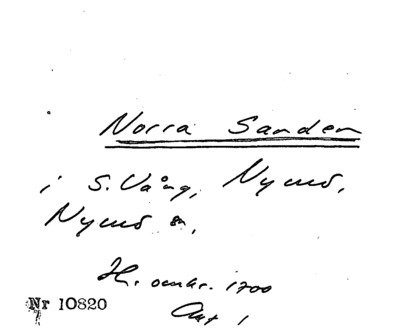 Norra Sanden
i S. Vång, Nymö,
Nymö sn,
H. omkr. 1700
Nr 10820